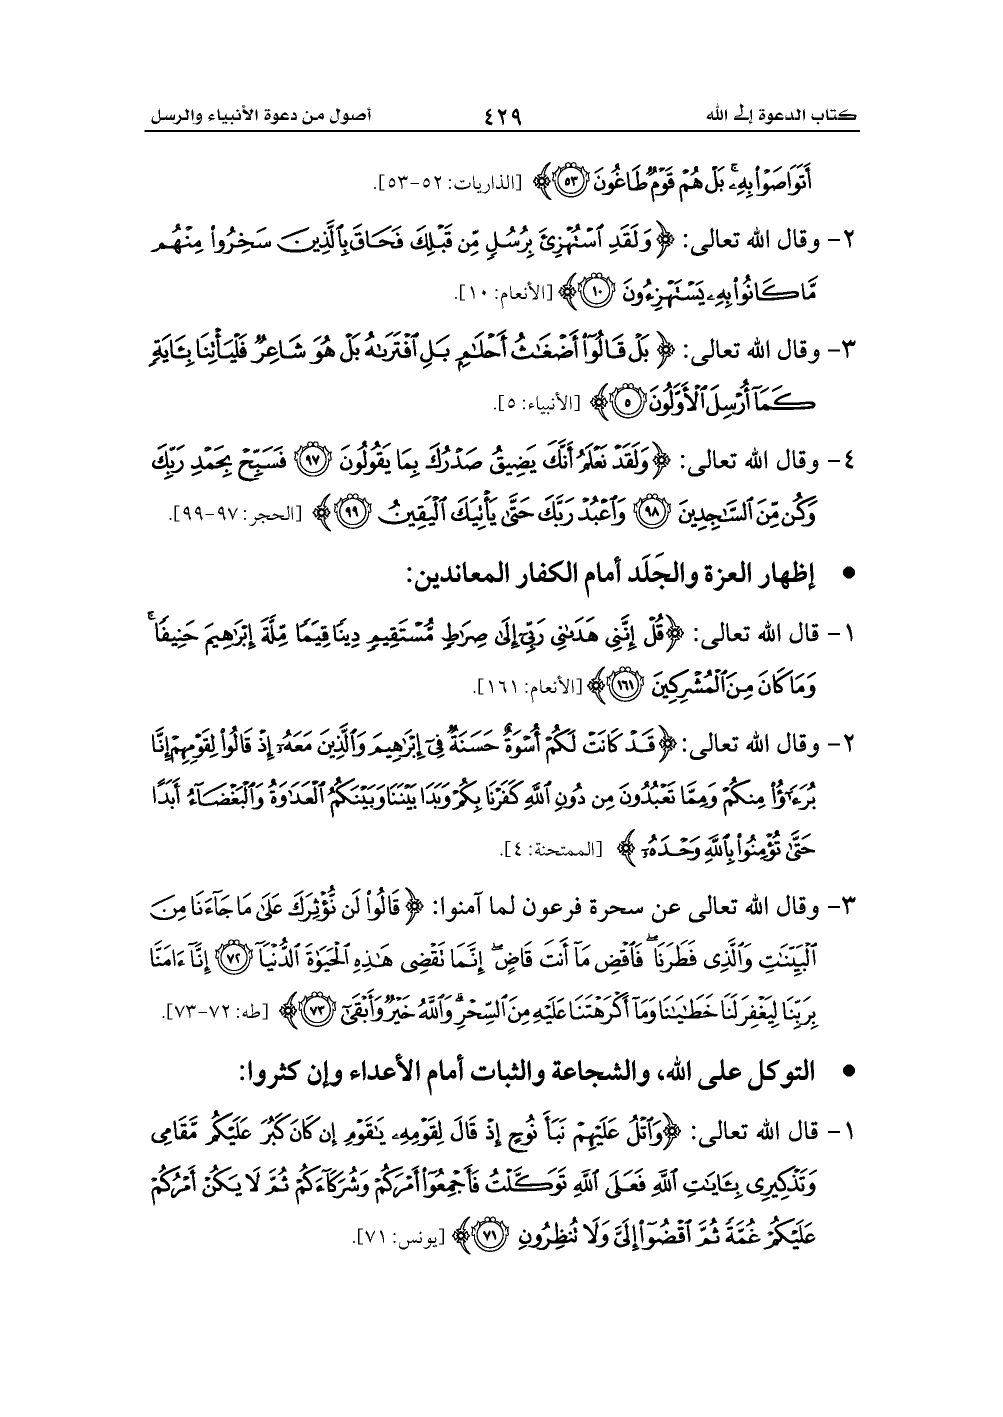 كتاب الدعوة إلى الله ٤٢٩ أصول من دعوة الأنبياء والرسل
أَتَوَاصَوْا۟ بِهِۦ ۚ بَلْ هُمْ قَوْمٌ طَاغُونَ ٥٣﴾ [الذاريات: ٥٢-٥٣].
٢- وقال الله تعالى: ﴿وَلَقَدِ ٱسْتُهْزِئَ بِرُسُلٍ مِّن قَبْلِكَ فَحَاقَ بِٱلَّذِينَ سَخِرُوا۟ مِنْهُم
مَّا كَانُوا۟ بِهِۦ يَسْتَهْزِءُونَ ١٠﴾ [الأنعام: ١٠].
٣- وقال الله تعالى: ﴿بَلْ قَالُوٓا۟ أَضْغَٰثُ أَحْلَٰمٍۭ بَلِ ٱفْتَرَىٰهُ بَلْ هُوَ شَاعِرٌ فَلْيَأْتِنَا بِـَٔايَةٍ
كَمَآ أُرْسِلَ ٱلْأَوَّلُونَ ٥﴾ [الأنبياء: ٥].
٤- وقال الله تعالى: ﴿وَلَقَدْ نَعْلَمُ أَنَّكَ يَضِيقُ صَدْرُكَ بِمَا يَقُولُونَ ٩٧ فَسَبِّحْ بِحَمْدِ رَبِّكَ
وَكُن مِّنَ ٱلسَّٰجِدِينَ ٩٨ وَٱعْبُدْ رَبَّكَ حَتَّىٰ يَأْتِيَكَ ٱلْيَقِينُ ٩٩﴾ [الحجر: ٩٧-٩٩].
• إظهار العزة والجَلَد أمام الكفار المعاندين:
١- قال الله تعالى: ﴿قُلْ إِنَّنِى هَدَىٰنِى رَبِّىٓ إِلَىٰ صِرَٰطٍ مُّسْتَقِيمٍ دِينًا قِيَمًا مِّلَّةَ إِبْرَٰهِيمَ حَنِيفًا ۚ
وَمَا كَانَ مِنَ ٱلْمُشْرِكِينَ ١٦١﴾ [الأنعام: ١٦١].
٢- وقال الله تعالى: ﴿قَدْ كَانَتْ لَكُمْ أُسْوَةٌ حَسَنَةٌ فِىٓ إِبْرَٰهِيمَ وَٱلَّذِينَ مَعَهُۥٓ إِذْ قَالُوا۟ لِقَوْمِهِمْ إِنَّا
بُرَءَٰٓؤُا۟ مِنكُمْ وَمِمَّا تَعْبُدُونَ مِن دُونِ ٱللَّهِ كَفَرْنَا بِكُمْ وَبَدَا بَيْنَنَا وَبَيْنَكُمُ ٱلْعَدَٰوَةُ وَٱلْبَغْضَآءُ أَبَدًا
حَتَّىٰ تُؤْمِنُوا۟ بِٱللَّهِ وَحْدَهُۥٓ﴾ [الممتحنة: ٤].
٣- وقال الله تعالى عن سحرة فرعون لما آمنوا: ﴿قَالُوا۟ لَن نُّؤْثِرَكَ عَلَىٰ مَا جَآءَنَا مِنَ
ٱلْبَيِّنَٰتِ وَٱلَّذِى فَطَرَنَا ۖ فَٱقْضِ مَآ أَنتَ قَاضٍ ۖ إِنَّمَا تَقْضِى هَٰذِهِ ٱلْحَيَوٰةَ ٱلدُّنْيَآ ٧٢ إِنَّآ ءَامَنَّا
بِرَبِّنَا لِيَغْفِرَ لَنَا خَطَٰيَٰنَا وَمَآ أَكْرَهْتَنَا عَلَيْهِ مِنَ ٱلسِّحْرِ ۗ وَٱللَّهُ خَيْرٌ وَأَبْقَىٰٓ ٧٣﴾ [طه: ٧٢-٧٣].
• التوكل على الله، والشجاعة والثبات أمام الأعداء وإن كثروا:
١- قال الله تعالى: ﴿وَٱتْلُ عَلَيْهِمْ نَبَأَ نُوحٍ إِذْ قَالَ لِقَوْمِهِۦ يَٰقَوْمِ إِن كَانَ كَبُرَ عَلَيْكُم مَّقَامِى
وَتَذْكِيرِى بِـَٔايَٰتِ ٱللَّهِ فَعَلَى ٱللَّهِ تَوَكَّلْتُ فَأَجْمِعُوٓا۟ أَمْرَكُمْ وَشُرَكَآءَكُمْ ثُمَّ لَا يَكُنْ أَمْرُكُمْ
عَلَيْكُمْ غُمَّةً ثُمَّ ٱقْضُوٓا۟ إِلَىَّ وَلَا تُنظِرُونِ ٧١﴾ [يونس: ٧١].